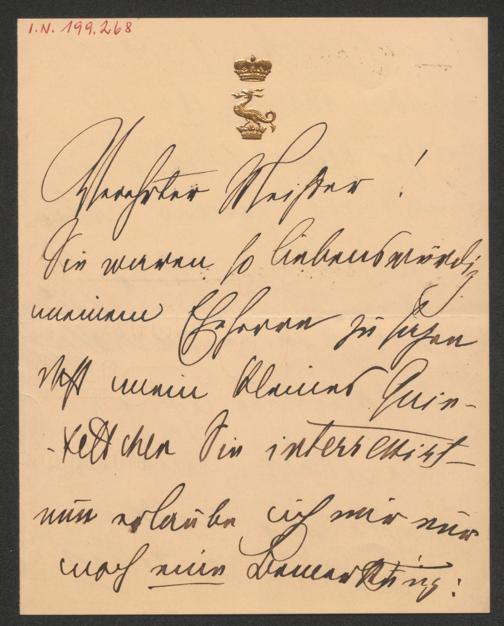 I.N. 199.268
Verehrter Meister!
Sie waren so liebenswürdig
meinem Eheherrn zu sagen
daß mein kleines Quin-
-tettchen Sie interessirt –
nun erlaube ich mir nur
noch eine Bemerkung: